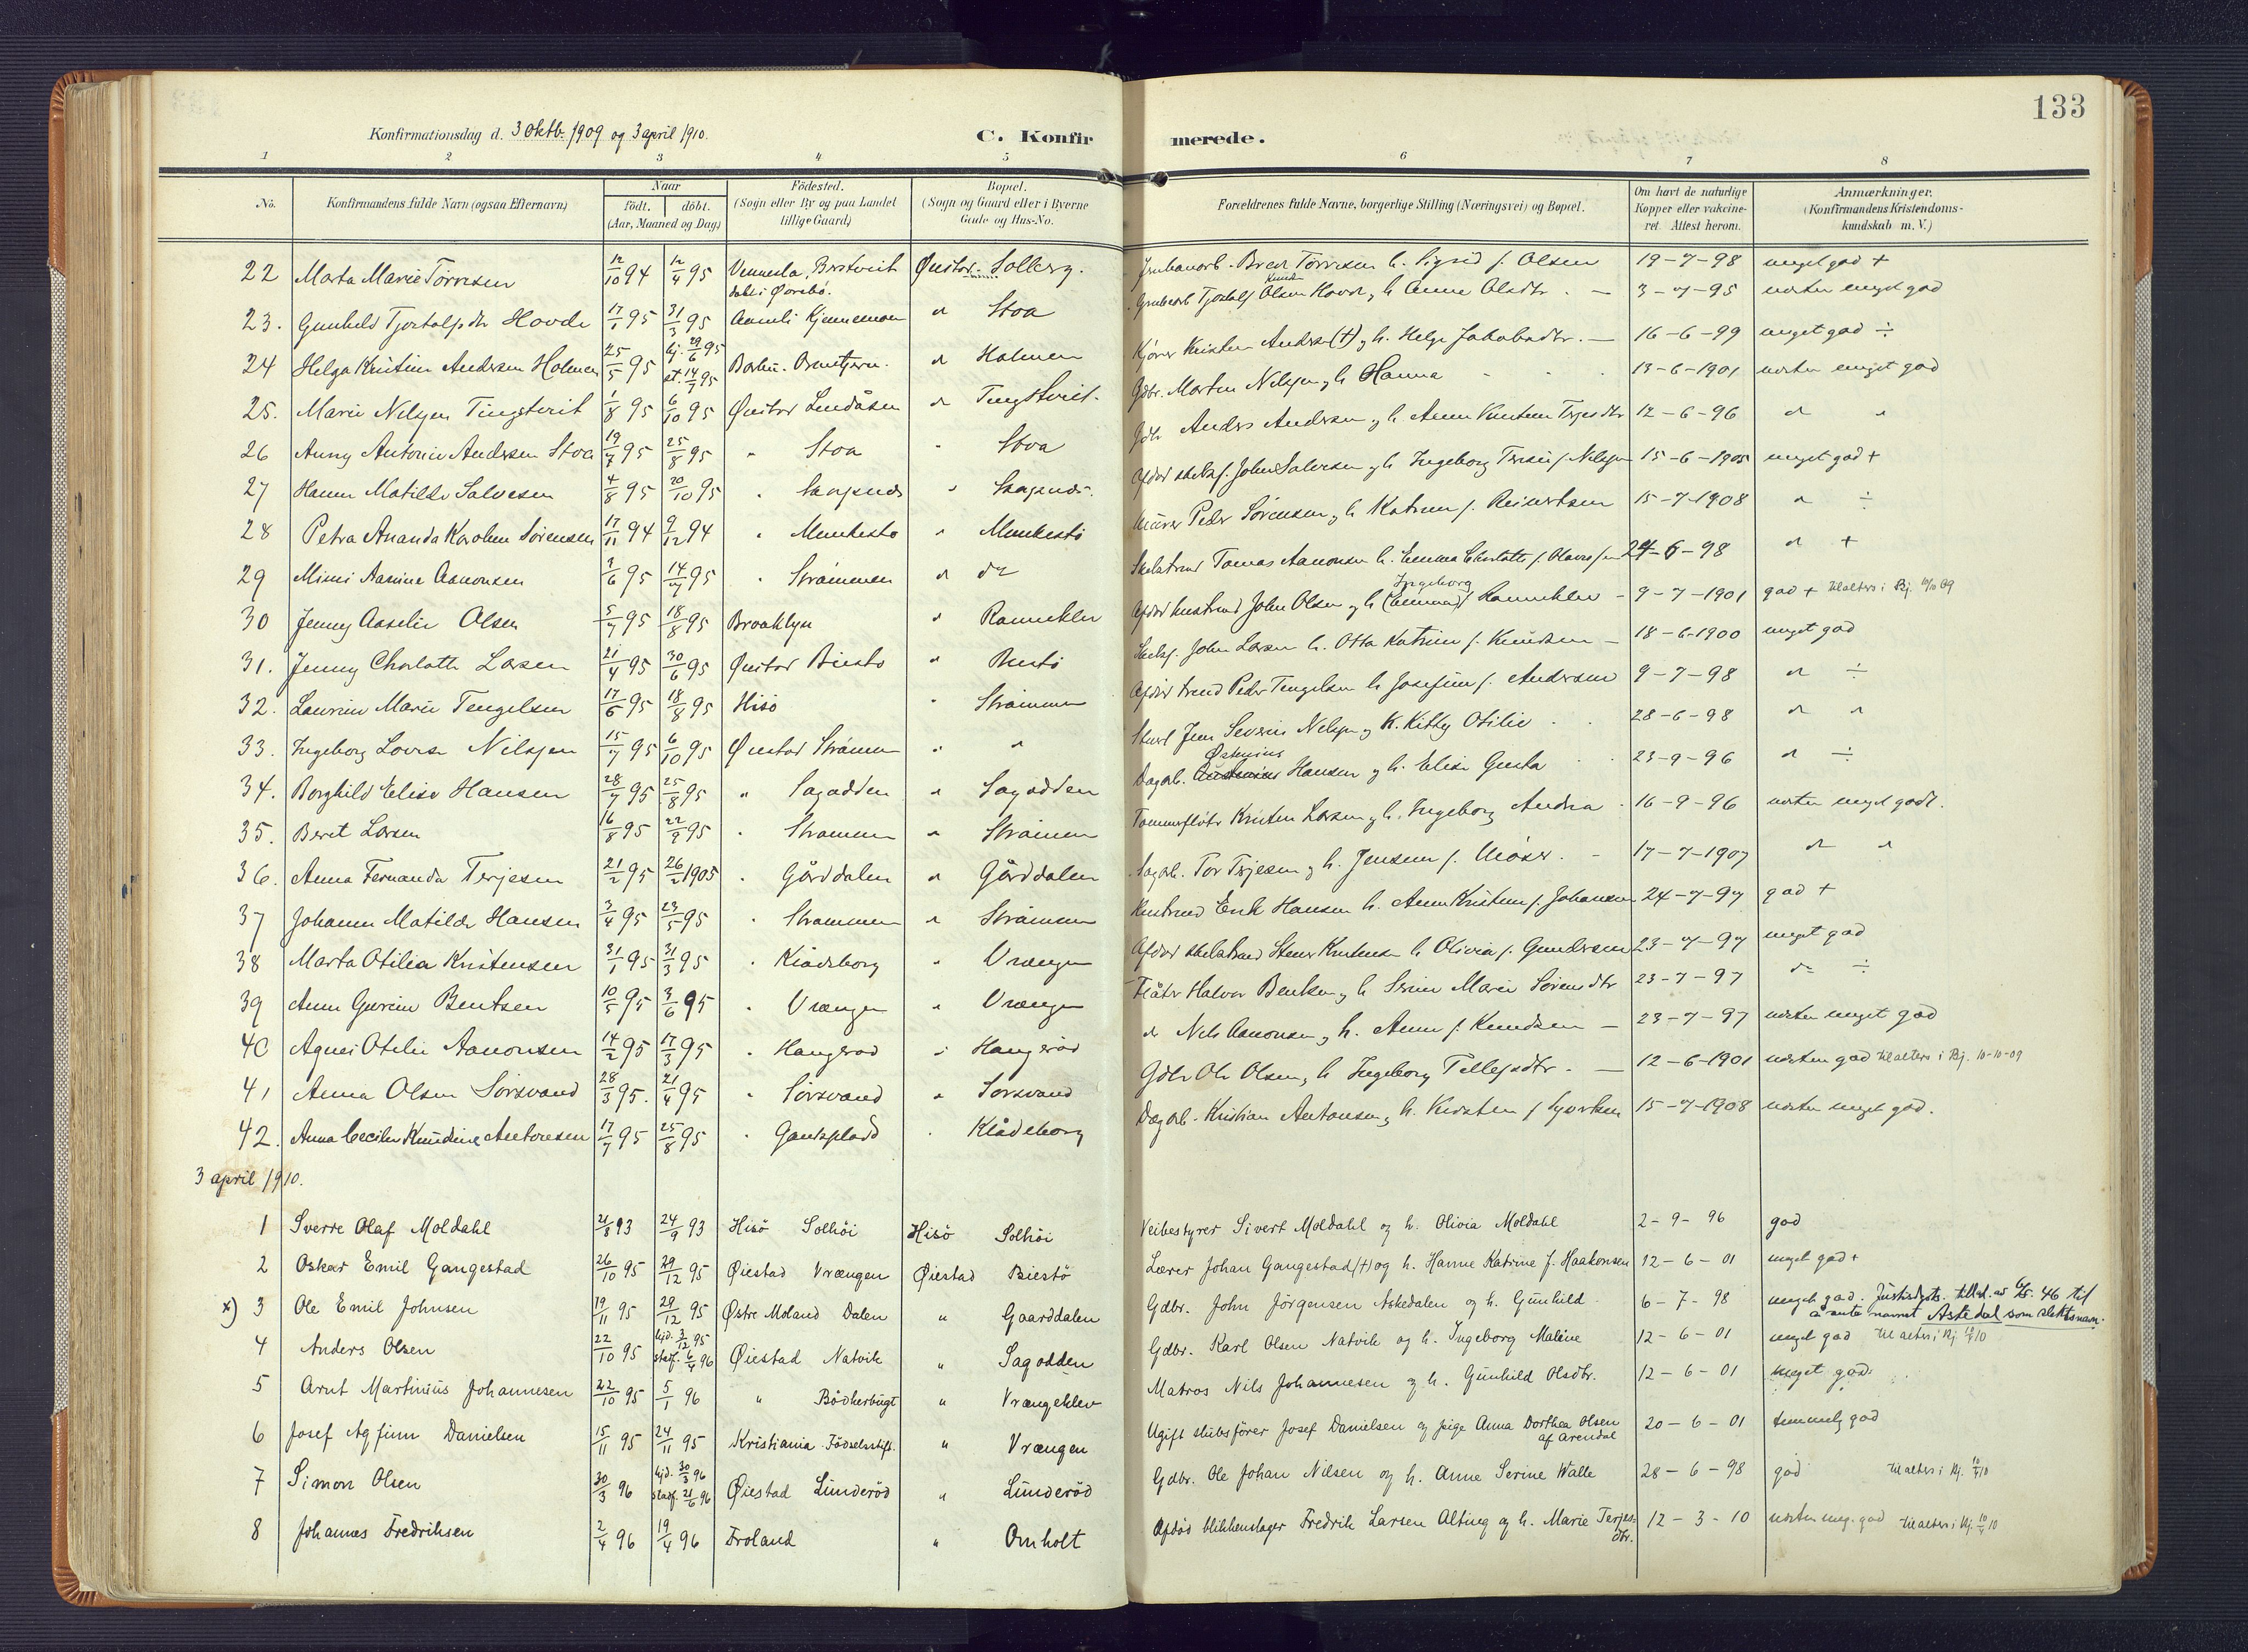 133
Konfirmationsdag d. 3 Oktb. 1909 og 3 april 1910.
C. Konfirmerede.
1 2 3 4 5 6 7 8
No.
Konfirmandens fulde Navn (ogsaa Efternavn)
Naar
födt. döbt.
(Aar, Maaned og Dag)
Födested.
(Sogn eller By og paa Landet tillige Gaard)
Bopæl.
(Sogn og Gaard eller i Byerne Gade og Hus-No.
Forældrenes fulde Navne, borgerlige Stilling (Næringsvei) og Bopæl.
Om havt de naturlige Kopper eller vakcineret. Attest herom.
Anmærkninger.
(Konfirmandens Kristendomskundskab m. V.)
22 Marta Marie Torresen 12/10 94 12/4 95 Solberg. 19-7-98 meget god +
23. Gunhild Hovde 17/1 95 31/3 95 Aamli " Stoa 3-7-95 næsten meget god
24 Helga Kristine Andersen Holmen 25/5 95 hj. 29/6 95 st. 14/7 95 " Holmen 16-6-99 meget god ÷
25. Marie Nelsen Tingstveit 1/8 95 6/10 95 Øiestad Lindåsen " Tingstveit. Gdbr. Morten Nelsen og h. Hanna 13-6-1901 næsten meget god
26 Anny Antonie Andersen Stoa 19/7 95 25/8 95 " Stoa " Stoa Gdbr Anders Andersen og h. Anne Terjesdtr 12-6-96 " "
27 Hanna Matilde Salvesen 4/8 95 20/10 95 John Salvesen og h. Ingeborg Nelsen 15-6-1905 meget god +
28 Petra Ananda Karoline Sørensen 17/11 94 9/12 94 " Munkestø " Munkestø Murer Peder Sørensen og h. Katrine f. Reinertsen 15-7-1908 " ÷
29 Mimi Aasine Aanonsen 2/6 95 14/7 95 " Strømmen " do Tomas Aanonsen h. Emma Charlotte 24-6-98 " +
30 Jenny Aaselie Olsen 5/7 95 18/8 95 Brooklyn " Ranneklev John Olsen og h. (Emma) Ingeborg Ranneklev 9-7-1901 god + til alters i Bj. 10/10 09
31. Jenny Charlotte Larsen 21/4 95 30/6 95 Øiestad Biestø " Biestø John Larsen h. Otta Katrine f. Knudsen 18-6-1900 meget god
32. Laurine Marie Tengelsen 17/6 95 18/8 95 Hisø " Strømmen Peder Tengelsen h. Josefine f. Andersen 9-7-98 " ÷
33. Ingeborg Lovise Nilsen 15/7 95 6/10 95 Øiestad Strømmen " " Jens Severin Nelsen og h. Kitty Otilie 28-6-98 " "
34. Borghild Elise Hansen 28/7 95 25/8 95 " Sagodden " Sagodden Dagarb. Østenius Hansen og h. Elise Gusta 23-9-96 " ÷
35. Beret Larsen 16/8 95 22/9 95 " Strømmen " Strømmen Tømmerfløter Kristen Larsen og h. Ingeborg Andrea 16-9-96 næsten meget godt.
36. Anna Fernanda Terjesen 21/2 95 26/2 1905 " Gårddalen " Gårddalen Sagarb. Tor Terjesen og h. Jensine 17-7-1907 " "
37 Johanne Matilde Hansen 3/4 95 23/5 95 " Strømmen " Strømmen Erik Hansen h. Anne Kristine f. Johansen 24-7-97 god +
38 Marta Otilia Kristensen 31/1 95 31/3 95 " Klødeborg " Vrængen h. Olivia f. Gundersen 23-7-97 meget god
39 Anne Gurine Bentsen 10/5 95 3/6 95 " Vrængen " Vrængen Fløter Halvor Bentsen og h. Serine Marie Sørensdtr 23-7-97 " ÷
40 Agnes Otilie Aanonsen 14/2 95 17/3 95 " Haugerød " Haugerød " Nils Aanonsen og h. Anne f. Knudsen 23-7-97 næsten meget god
41 Anna Olsen Sørsvand 28/3 95. 21/4 95 " Sørsvand " Sørsvand Gdbr Ole Olsen og h. Ingeborg Tellefsdtr. 12-6-1901 næsten god til alters i Bj. 10-10-09
42. Anna Cecilie Knudine Antonsen 17/7 95 25/8 95 " Gauksplads " Klødeborg Dagarb. Kristian Antonsen og h. Kirsten 15-7-1908 næsten meget god.
3 april 1910.
1 Sverre Olaf Moldahl 21/8 93 24/9 93 Hisö Solhöi Hisö Solhöi Veibestyrer Sivert Moldahl og h. Olivia Moldahl 2-9-96 god
2 Oskar Emil Gangestad 26/10 95 29/12 95 Øiestad Vrængen Øiestad Biestö Lærer Johan Gangestad (+) og h. Hanne Katrine f. Haakonsen 12-6-01 meget god +
x) 3 Ole Emil Johnsen 19/11 95 29/12 95 Østre Moland Dalen " Gaarddalen Gdbr. John Jörgensen Askedalen og h. Gunhild 6-7-98 meget god. Justisdepts. tillat. av 6/5. 46 til
å anta navnet Askedal som slektsnavn.
4 Anders Olsen 22/10 95 hjd. 3/12 95 stadf. 6/4 96 Øiestad Natvik " Sagodden Gdbr. Karl Olsen Natvik og h. Ingeborg Maline 12-6-01 meget god til alters i Bj. 10/4 10
5 Arnt Martinius Johannesen 22/10 95 5/1 96 " Bödkerbugt " Vrængeklev Matros Nils Johannesen og h. Gunhild Olsdtr. 12-6-01 meget god.
6 Josef Agfinn Danielsen 15/11 95 24/11 95 Kristiania Födselsstift. " Vrængen Ugift skibsförer Josef Danielsen og pige Anna Dorthea Olsen
af Arendal 20-6-01 temmelig god
7 Simon Olsen 30/3 96 hjd. 30/3 96 stadf. 21/6 96 Øiestad Lunderöd " Lunderöd Gdbr. Ole Johan Nilsen og h. Anne Serine Walle 28-6-98 god til alters i Bj. 10/4 10
8 Johannes Fredriksen 2/4 96 19/4 96 Froland " Omholt Afdöd blikkenslager Fredrik Larsen Alting og h. Marie Terjesdtr. 12-3-10 næsten meg. god til alters i Bj. 10/4 10